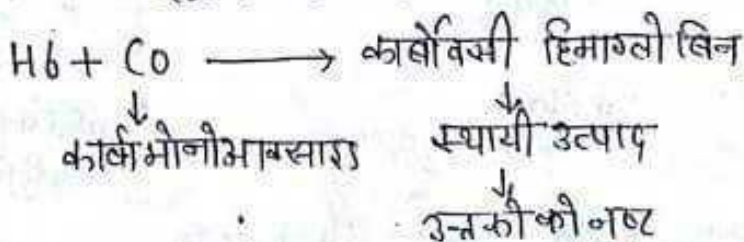 Hb + CO ⟶ कार्बोक्सी हिमोग्लोबिन
↓ ↓
कार्बामोनोआक्साइड स्थायी उत्पाद
↓
उत्तकों को नष्ट